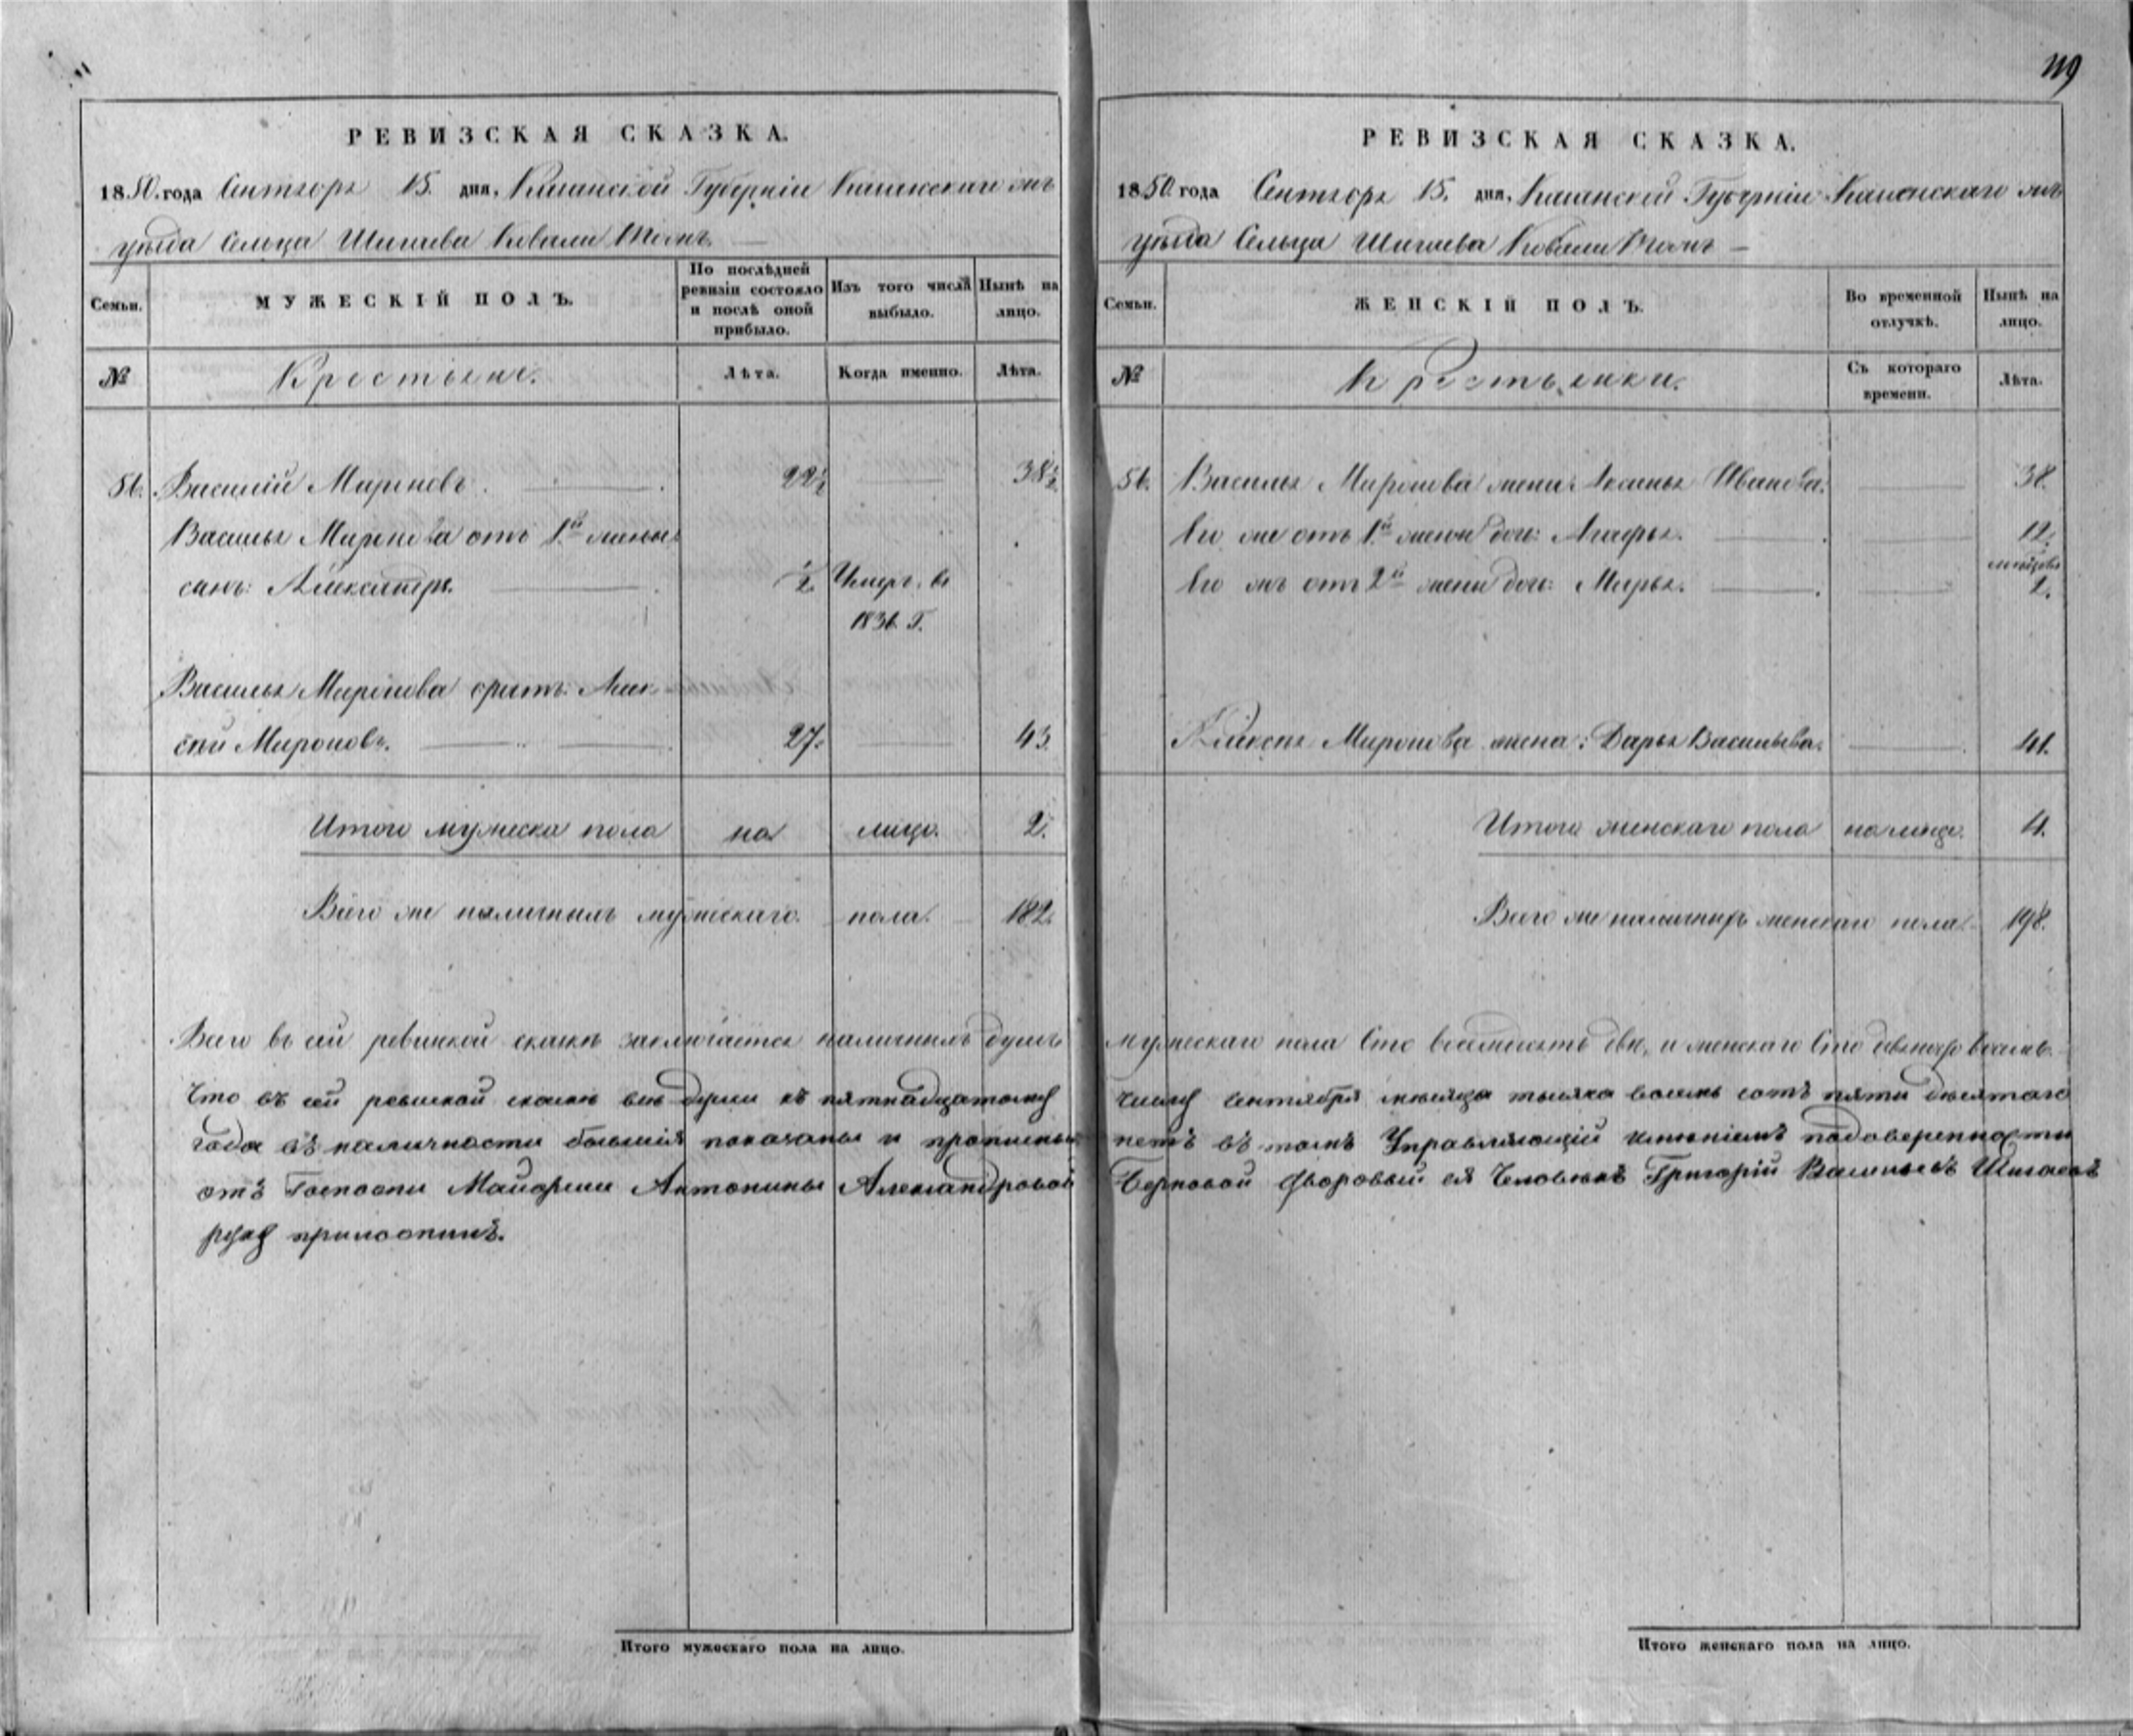 119
РЕВИЗСКАЯ СКАЗКА.
1850. года Сентября 15. дня, Казанской Губерніи Казанскаго
уѣзда Сельца Шигаева Ковали тожъ
Семьи.
МУЖЕСКІЙ ПОЛЪ.
По послѣдней ревизіи состояло и послѣ оной прибыло.
Изъ того числа выбыло.
Нынѣ на лицо.
№
Крестьяне.
Лѣта.
Когда именно.
Лѣта.
Василій Мироновъ. 22½ 38½
Василья Миронова отъ 1й жены
сынъ: Александръ. ½. Умеръ въ
1836. Г.
Василья Миронова братъ: Алек-
сѣй Мироновъ. 27. 43.
Итого мужеска пола на лицо. 2.
Всего же наличныхъ мужескаго пола. 182.
Всего въ сей ревизской сказкѣ заключается наличныхъ душъ
Что въ сей ревиской сказке все души къ пятнадцатому
года въ наличности бывшія показаны и прописных
отъ Госпожи Маіорши Антонины Александровой
руку приложилъ.
Итого мужескаго пола на лицо.
РЕВИЗСКАЯ СКАЗКА.
1850. года Сентября 15. дня, Казанской Губерніи Казанскаго
уѣзда Сельца Шигаева Ковали тожъ
Семьи.
ЖЕНСКІЙ ПОЛЪ.
Во временной отлучкѣ.
Нынѣ на лицо.
№
Крестьянки.
Съ котораго времени.
Лѣта.
Василья Миронова жена Аксинья Иванова. 38.
Его же отъ 1й жены дочь: Агафья. 12.
мѣсяцовъ
Его жъ отъ 2й жены дочь: Марья. 2.
Алексѣя Миронова жена: Дарья Васильева. 41.
Итого женскаго пола на лицо. 4.
Всего же наличныхъ женскаго пола. 198.
мужескаго пола Сто восемдесятъ двѣ, и женскаго Сто восемь.
числу Сентября месяца тысяча восемь сотъ пяти десятаго
нетъ въ томъ Управляющій именіемъ подоверенности
дворовый ея Человекъ Григорій Васильевъ Шигаевъ
Итого женскаго пола на лицо.